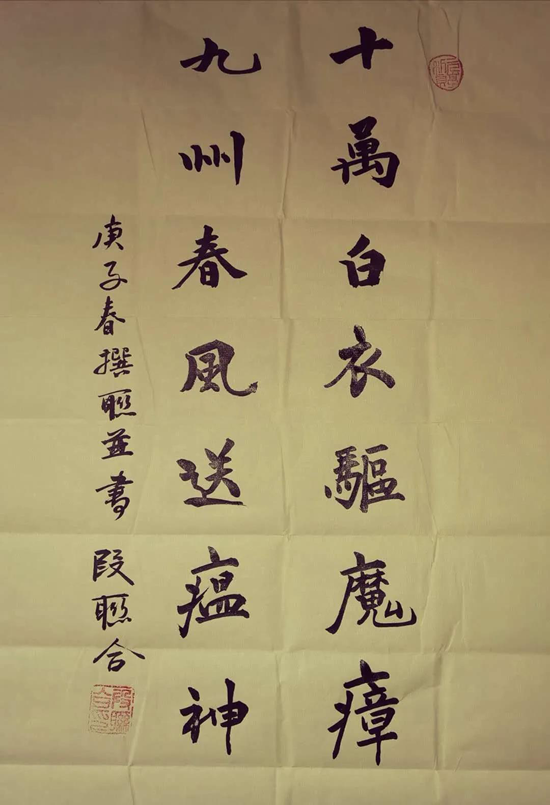 十萬白衣驅魔瘴
九州春風送瘟神
庚子春撰聯並書 段聯合